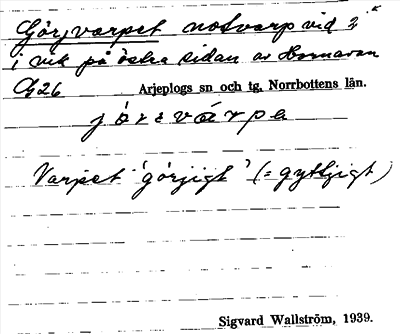 Görjvarpet notvarp vid 2
i vik på östra sidan av Hornavan
G26 Arjeplogs sn och tg, Norrbottens län.
Varpet 'görjigt' (= gyttjigt)
Sigvard Wallström, 1939.